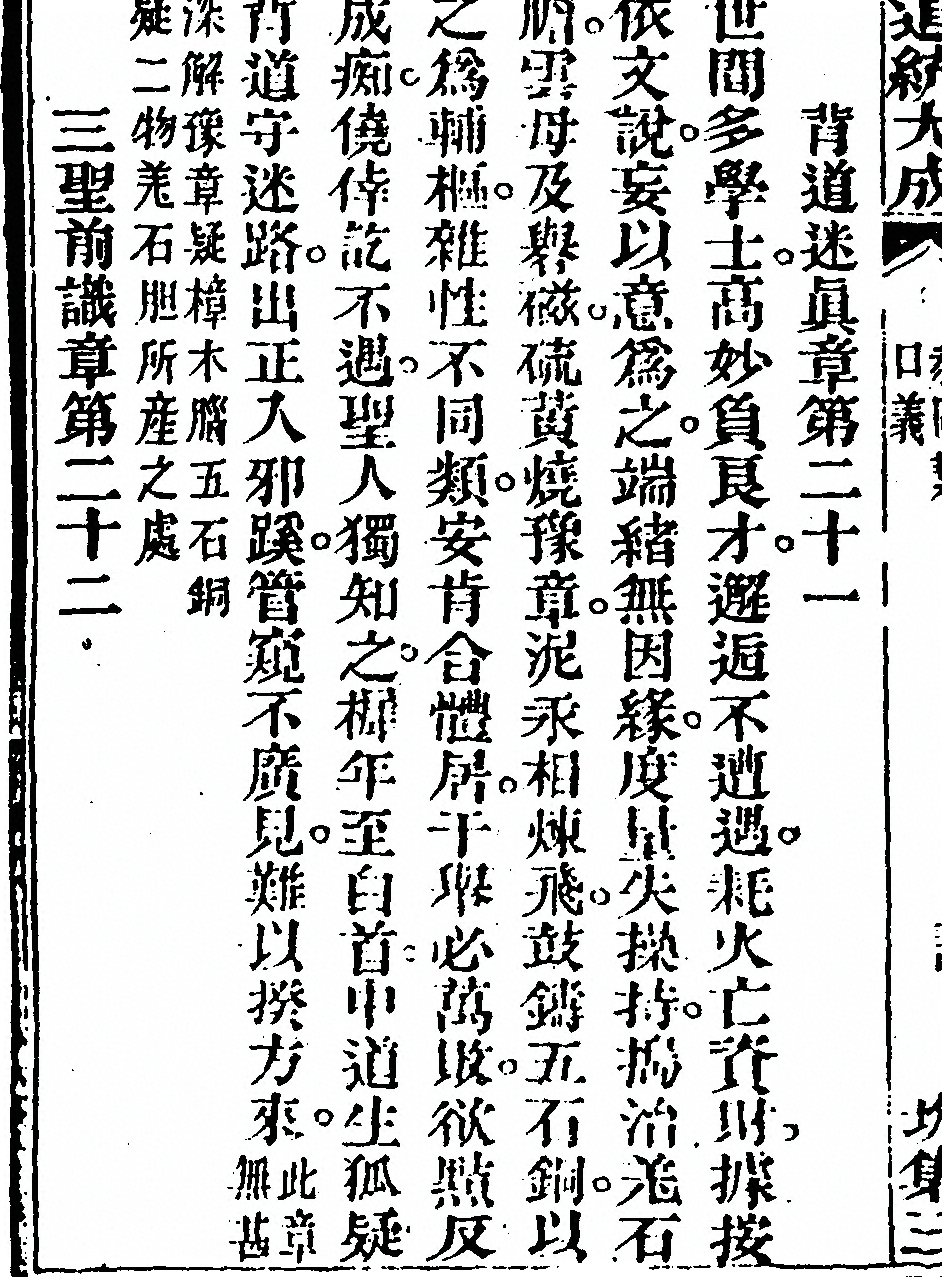 道統大成
口義
背道迷眞章第二十一
世間多學士。高妙負良才。邂逅不遭遇。耗火亡資財。據按
依文說。妄以意爲之。端緒無因緣。度量失操持。擣治羌石
膽。雲母及礜磁。硫黄燒豫章。泥汞相煉飛。鼓鑄五石銅。以
之爲輔樞。雜性不同類。安肯合體居。千舉必萬敗。欲黠反
成痴。僥倖訖不遇。聖人獨知之。穉年至白首。中道生狐疑
背道守迷路。出正入邪蹊。管窺不廣見。難以揆方來。此章無甚
深解豫章疑樟木腦五石銅
疑二物羌石胆所産之處
三聖前識章第二十二